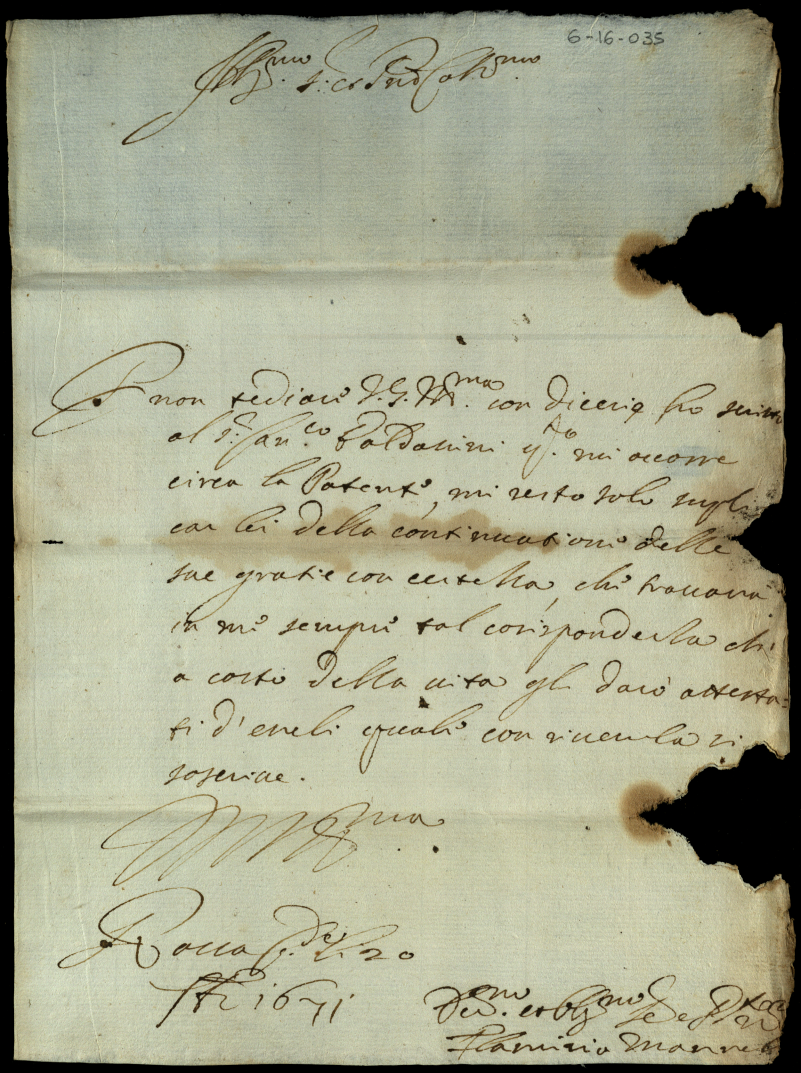 6-16-035
Ill.mo S.r et Pad Col.mo
P non tediare V.S. Ill.ma con dicerie ho scritto
al S.r Can.co Baldasini q.to mi occorre
circa la Patente, mi resto solo supli
car lei della continuatione delle
sue gratie con certezza, che trovarà
in me sempre tal corispondenza che
a costo della vita gli darò attesta=
ti d'
quali con riverenza mi
soscrive.
V S Ill.ma
Rocca 20
1671
Dev.mo et Obl.mo Se
Flaminio